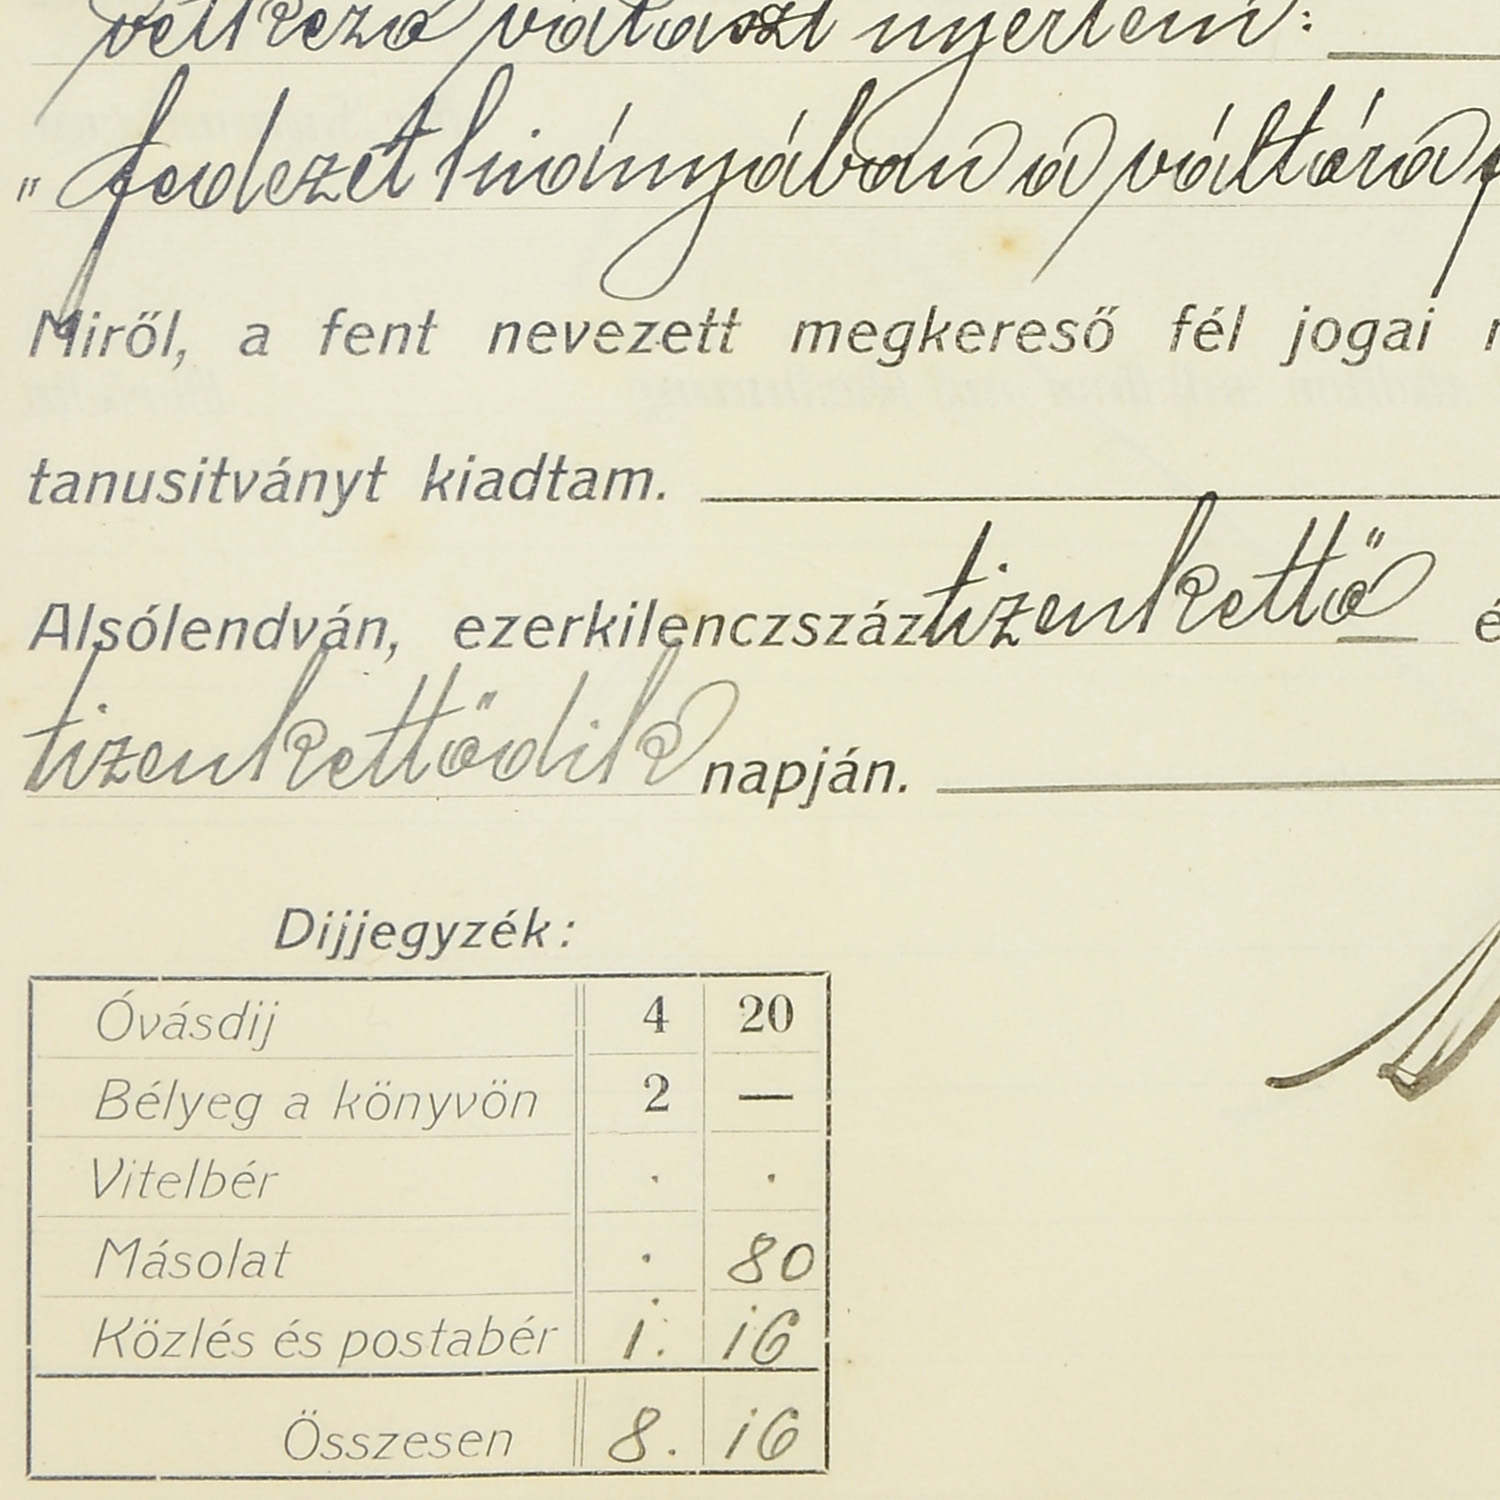 vetkező választ nyertem:
"fedezet hiányában a váltóra
Miről, a fent nevezett megkereső fél jogai
tanusitványt kiadtam.
Alsólendván, ezerkilenczszáz tizenkettő
tizenkettődik napján.
Dijjegyzék:
Óvásdij 4 20
Bélyeg a könyvön 2 —
Vitelbér . .
Másolat . 80
Közlés és postabér 1. 16
Összesen 8. 16